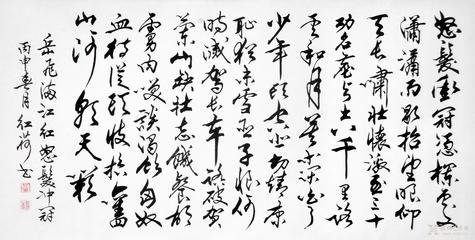 怒髮衝冠憑欄處
瀟瀟雨歇抬望眼仰
天長嘯壯懷激烈三十
功名塵與土八千里路
雲和月莫等閒白了
少年頭空悲切靖康
恥猶未雪臣子恨何
時滅駕長車踏破賀
蘭山缺壯志飢餐胡
虜肉笑談渴飲匈奴
血待從頭收拾舊
山河朝天闕
岳飛滿江紅怒髮沖冠
丙申春月紅荷書